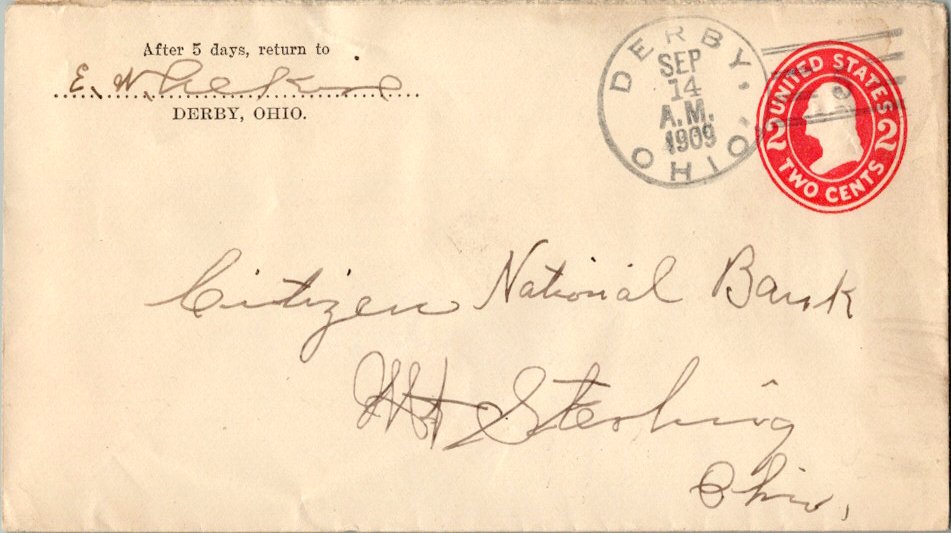 After 5 days, return to
E. W.
DERBY, OHIO.
DERBY, OHIO
SEP
14
A.M.
1909
UNITED STATES
2 2
TWO CENTS
Citizen National Bank
Mt Sterling
Ohio,